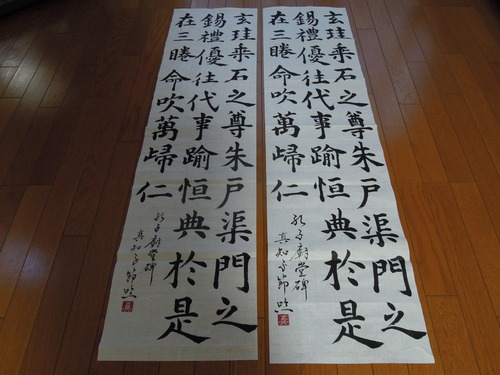 玄珪乗石之尊朱戸渠門之
錫禮優往代事踰恒典於是
在三睠命吹萬歸仁
孔子廟堂碑
玄珪乗石之尊朱戸渠門之
錫禮優往代事踰恒典於是
在三睠命吹萬歸仁
孔子廟堂碑